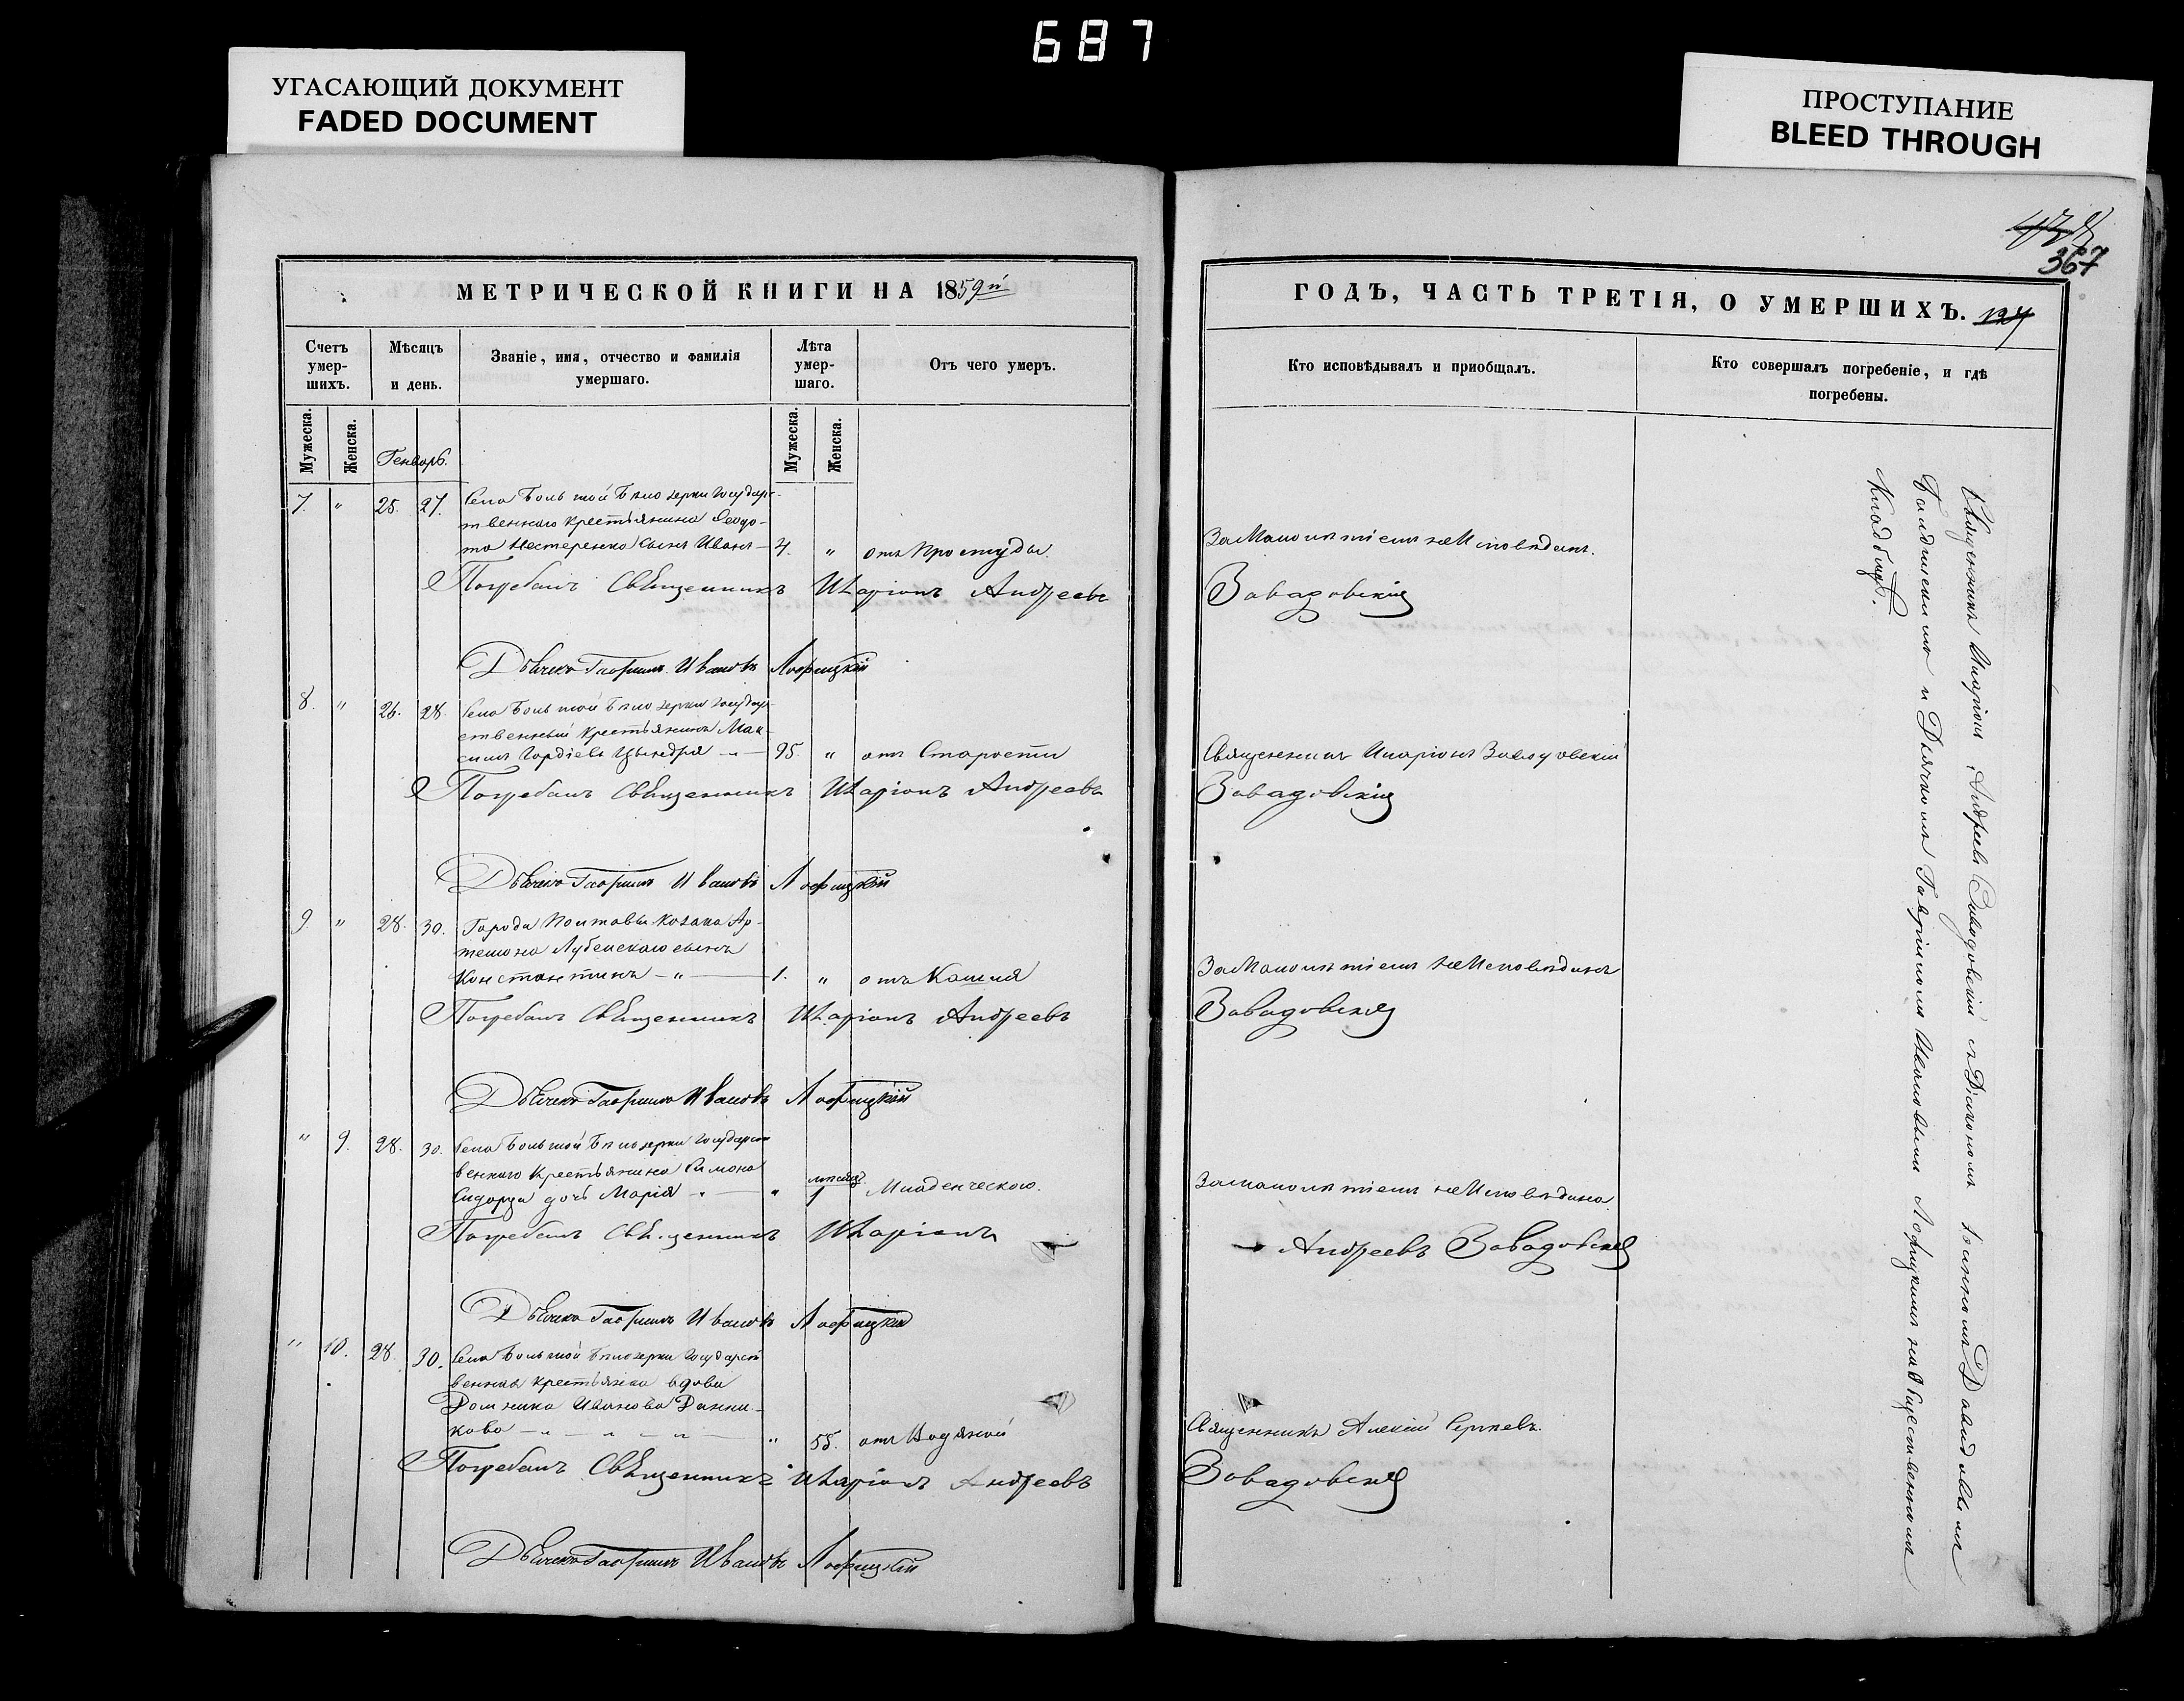 687
УГАСАЮЩИЙ ДОКУМЕНТ
FADED DOCUMENT
ПРОСТУПАНИЕ
BLEED THROUGH
367
МЕТРИЧЕСКОЙ КНИГИ НА 1859й
ГОДЪ, ЧАСТЬ ТРЕТІЯ, О УМЕРШИХЪ. 127
Счетъ умер-шихъ.
Мѣсяцъ и день.
Званіе, имя, отчество и фамилія умершаго.
Лѣта умер-шаго.
Отъ чего умеръ.
Кто исповѣдывалъ и приобщалъ.
Кто совершалъ погребеніе, и гдѣ погребены.
Мужеска.
Женска.
Генварь.
Мужеска.
Женска.
7. " 25. 27. Села Большой Бѣлозерки государс-
твеннаго крестьянина Феодо-
та Нестеренко сынъ Иванъ — 4. " отъ Простуды. За Малолѣтіемъ не Исповѣданъ.
Погребалъ Священникъ Иларіонъ Андреевъ Завадовскій
Дьячекъ Гавріилъ Ивановъ Лофицкій
8. " 26. 28. Села Большой Бѣлозерки государ-
ственный крестьянинъ Мак-
симъ Гордіевъ — " — 95. " отъ Старости Священникъ Иларіонъ Завадовскій
Погребалъ Священникъ Иларіонъ Андреевъ Завадовскій
Дьячекъ Гавріилъ Ивановъ Лофицкій
9. " 28. 30. Города Полтавы козака Ар-
темона Лубенскаго сынъ
Константинъ — " — 1. " отъ Кашля За Малолѣтіемъ не Исповѣданъ
Погребалъ Священникъ Иларіонъ Андреевъ Завадовскій
Дьячекъ Гавріилъ Ивановъ Лофицкій
" 9. 28. 30. Села Большой Бѣлозерки государст
веннаго крестьянина Симона
дочь Марія " — " мѣсяцъ 1 Младенческою. За малолѣтіемъ не Исповѣдана
Погребалъ Священникъ Иларіонъ Андреевъ Завадовскій
Дьячекъ Гавріилъ Ивановъ Лофицкій
" 10. 28. 30. Села Большой Бѣлозерки Государст
венная крестьянка вдова
Домника Иванова Данни-
кова — " — " — " — " 55. отъ Водяной Священникъ Алексій Сергѣевъ.
Погребалъ Священникъ Иларіонъ Андреевъ Завадовскій
Дьячекъ Гавріилъ Ивановъ Лофицкій
Священникъ Иларіонъ Андреевъ Завадовскій съ Діакономъ Іоанномъ Давидовымъ
и Дьячкомъ Гавріиломъ Ивановымъ Лофицкимъ на Общественномъ
Кладбищѣ.